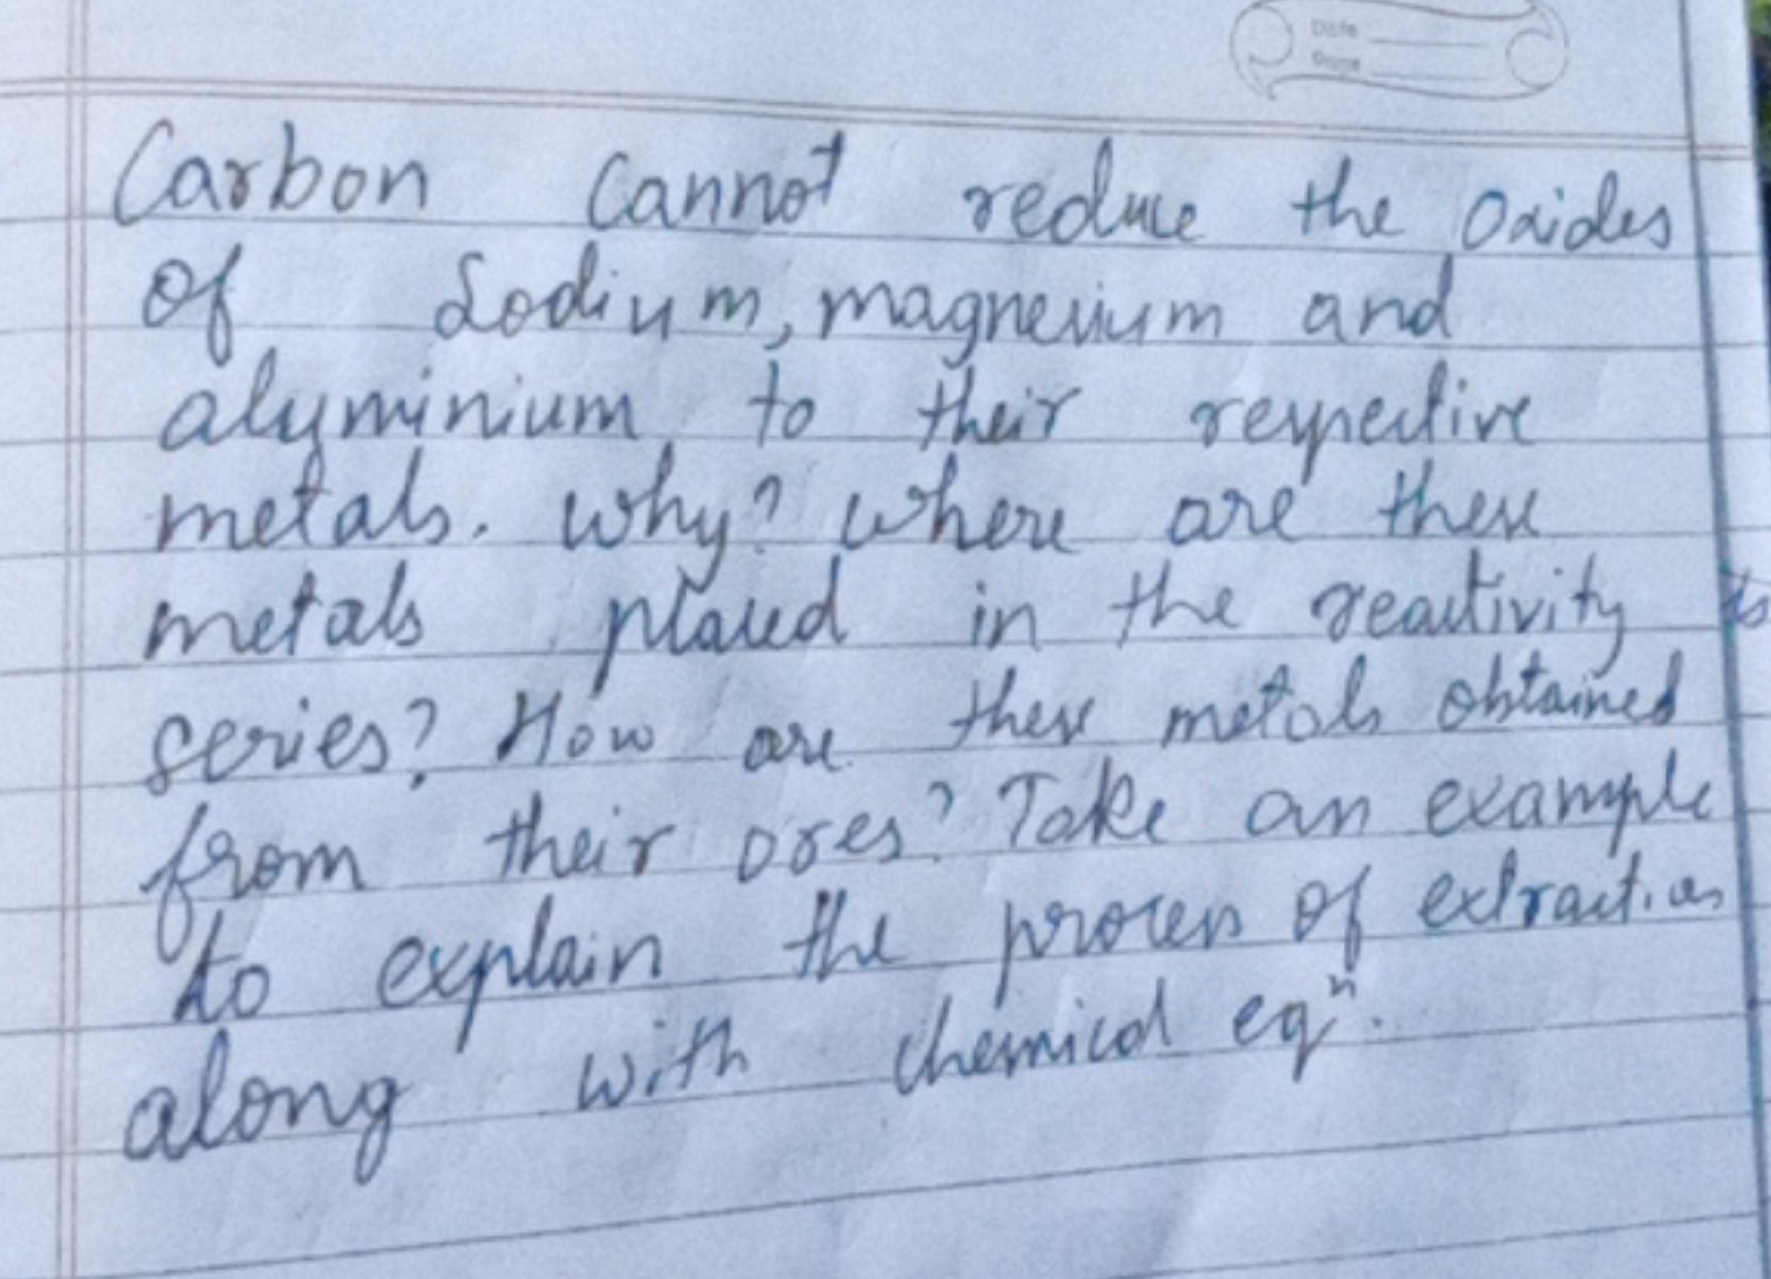 Date
Page
Carbon cannot reduce the oxides
of Sodium, magnesium and
aluminium to their respective
metals. Why? Where are these
metals placed in the reactivity
series? How are these metals obtained
from their ores? Take an example
to explain the process of extraction
along with chemical eqⁿ.